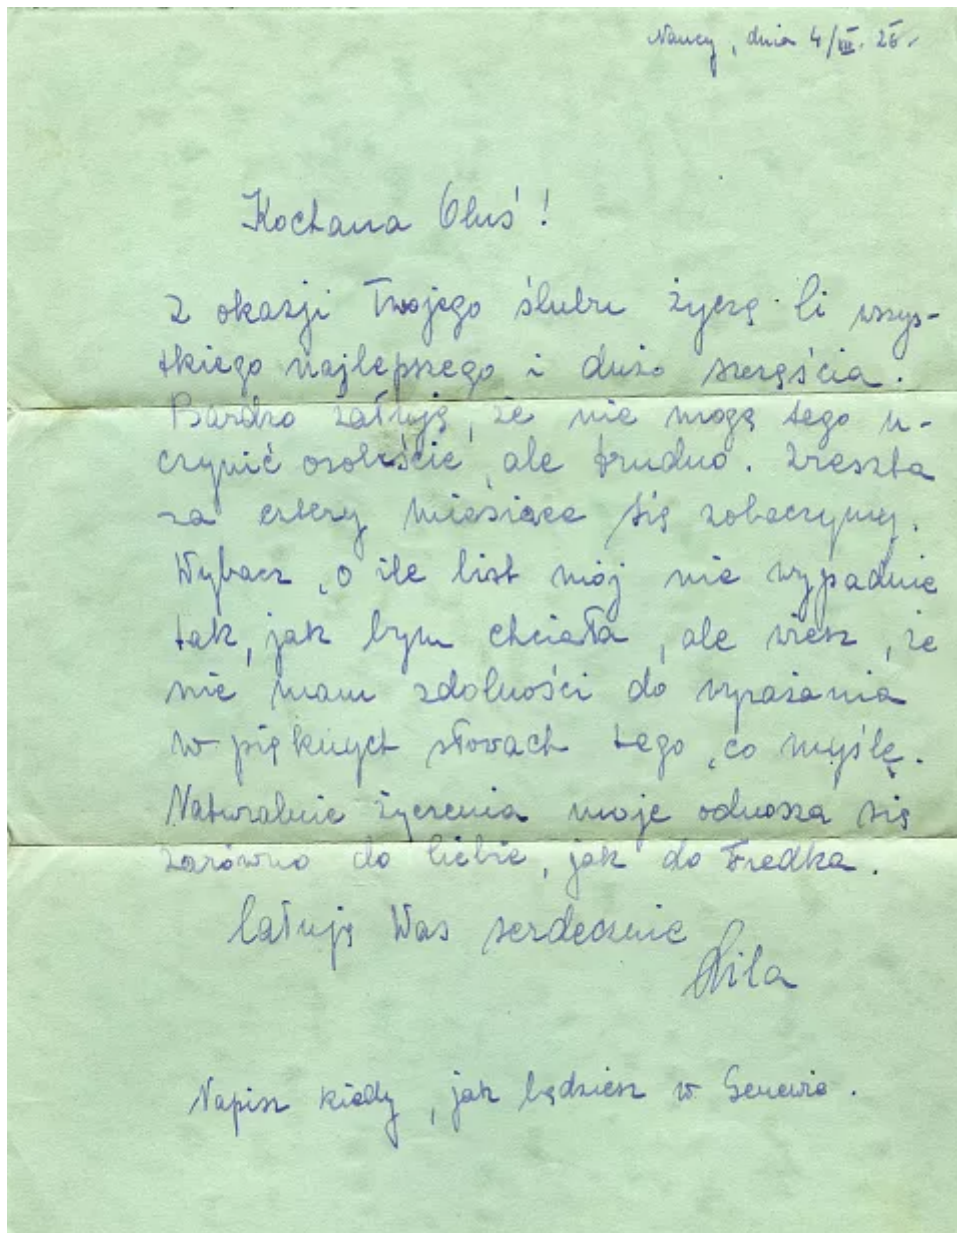 Nancy, dnia 4/III. 26.
Kochana Oluś!
Z okazji Twojego ślubu życzę Ci wszys-
tkiego najlepszego i dużo szczęścia.
Bardzo żałuję, że nie mogę tego u-
czynić osobiście, ale trudno. Zresztą
za cztery miesiące się zobaczymy.
Wybacz, o ile list mój nie wypadnie
tak, jak bym chciała, ale wiesz, że
nie mam zdolności do wyrażania
w pięknych słowach tego, co myślę.
Naturalnie życzenia moje odnoszą się
zarówno do Ciebie, jak do Fredka.
Całuję Was serdecznie
Lila
Napisz kiedy, jak będziesz w Genewie.